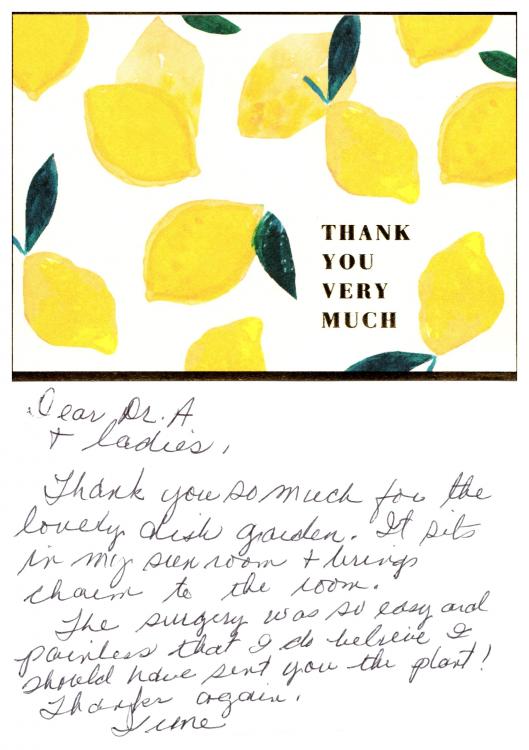 THANK
YOU
VERY
MUCH
Dear Dr. A
+ ladies,
Thank you so much for the
lovely dish garden. It sits
in my sun room + brings
charm to the room.
The surgery was so easy and
painless that I do believe I
should have sent you the plant!
Thanks again.
June